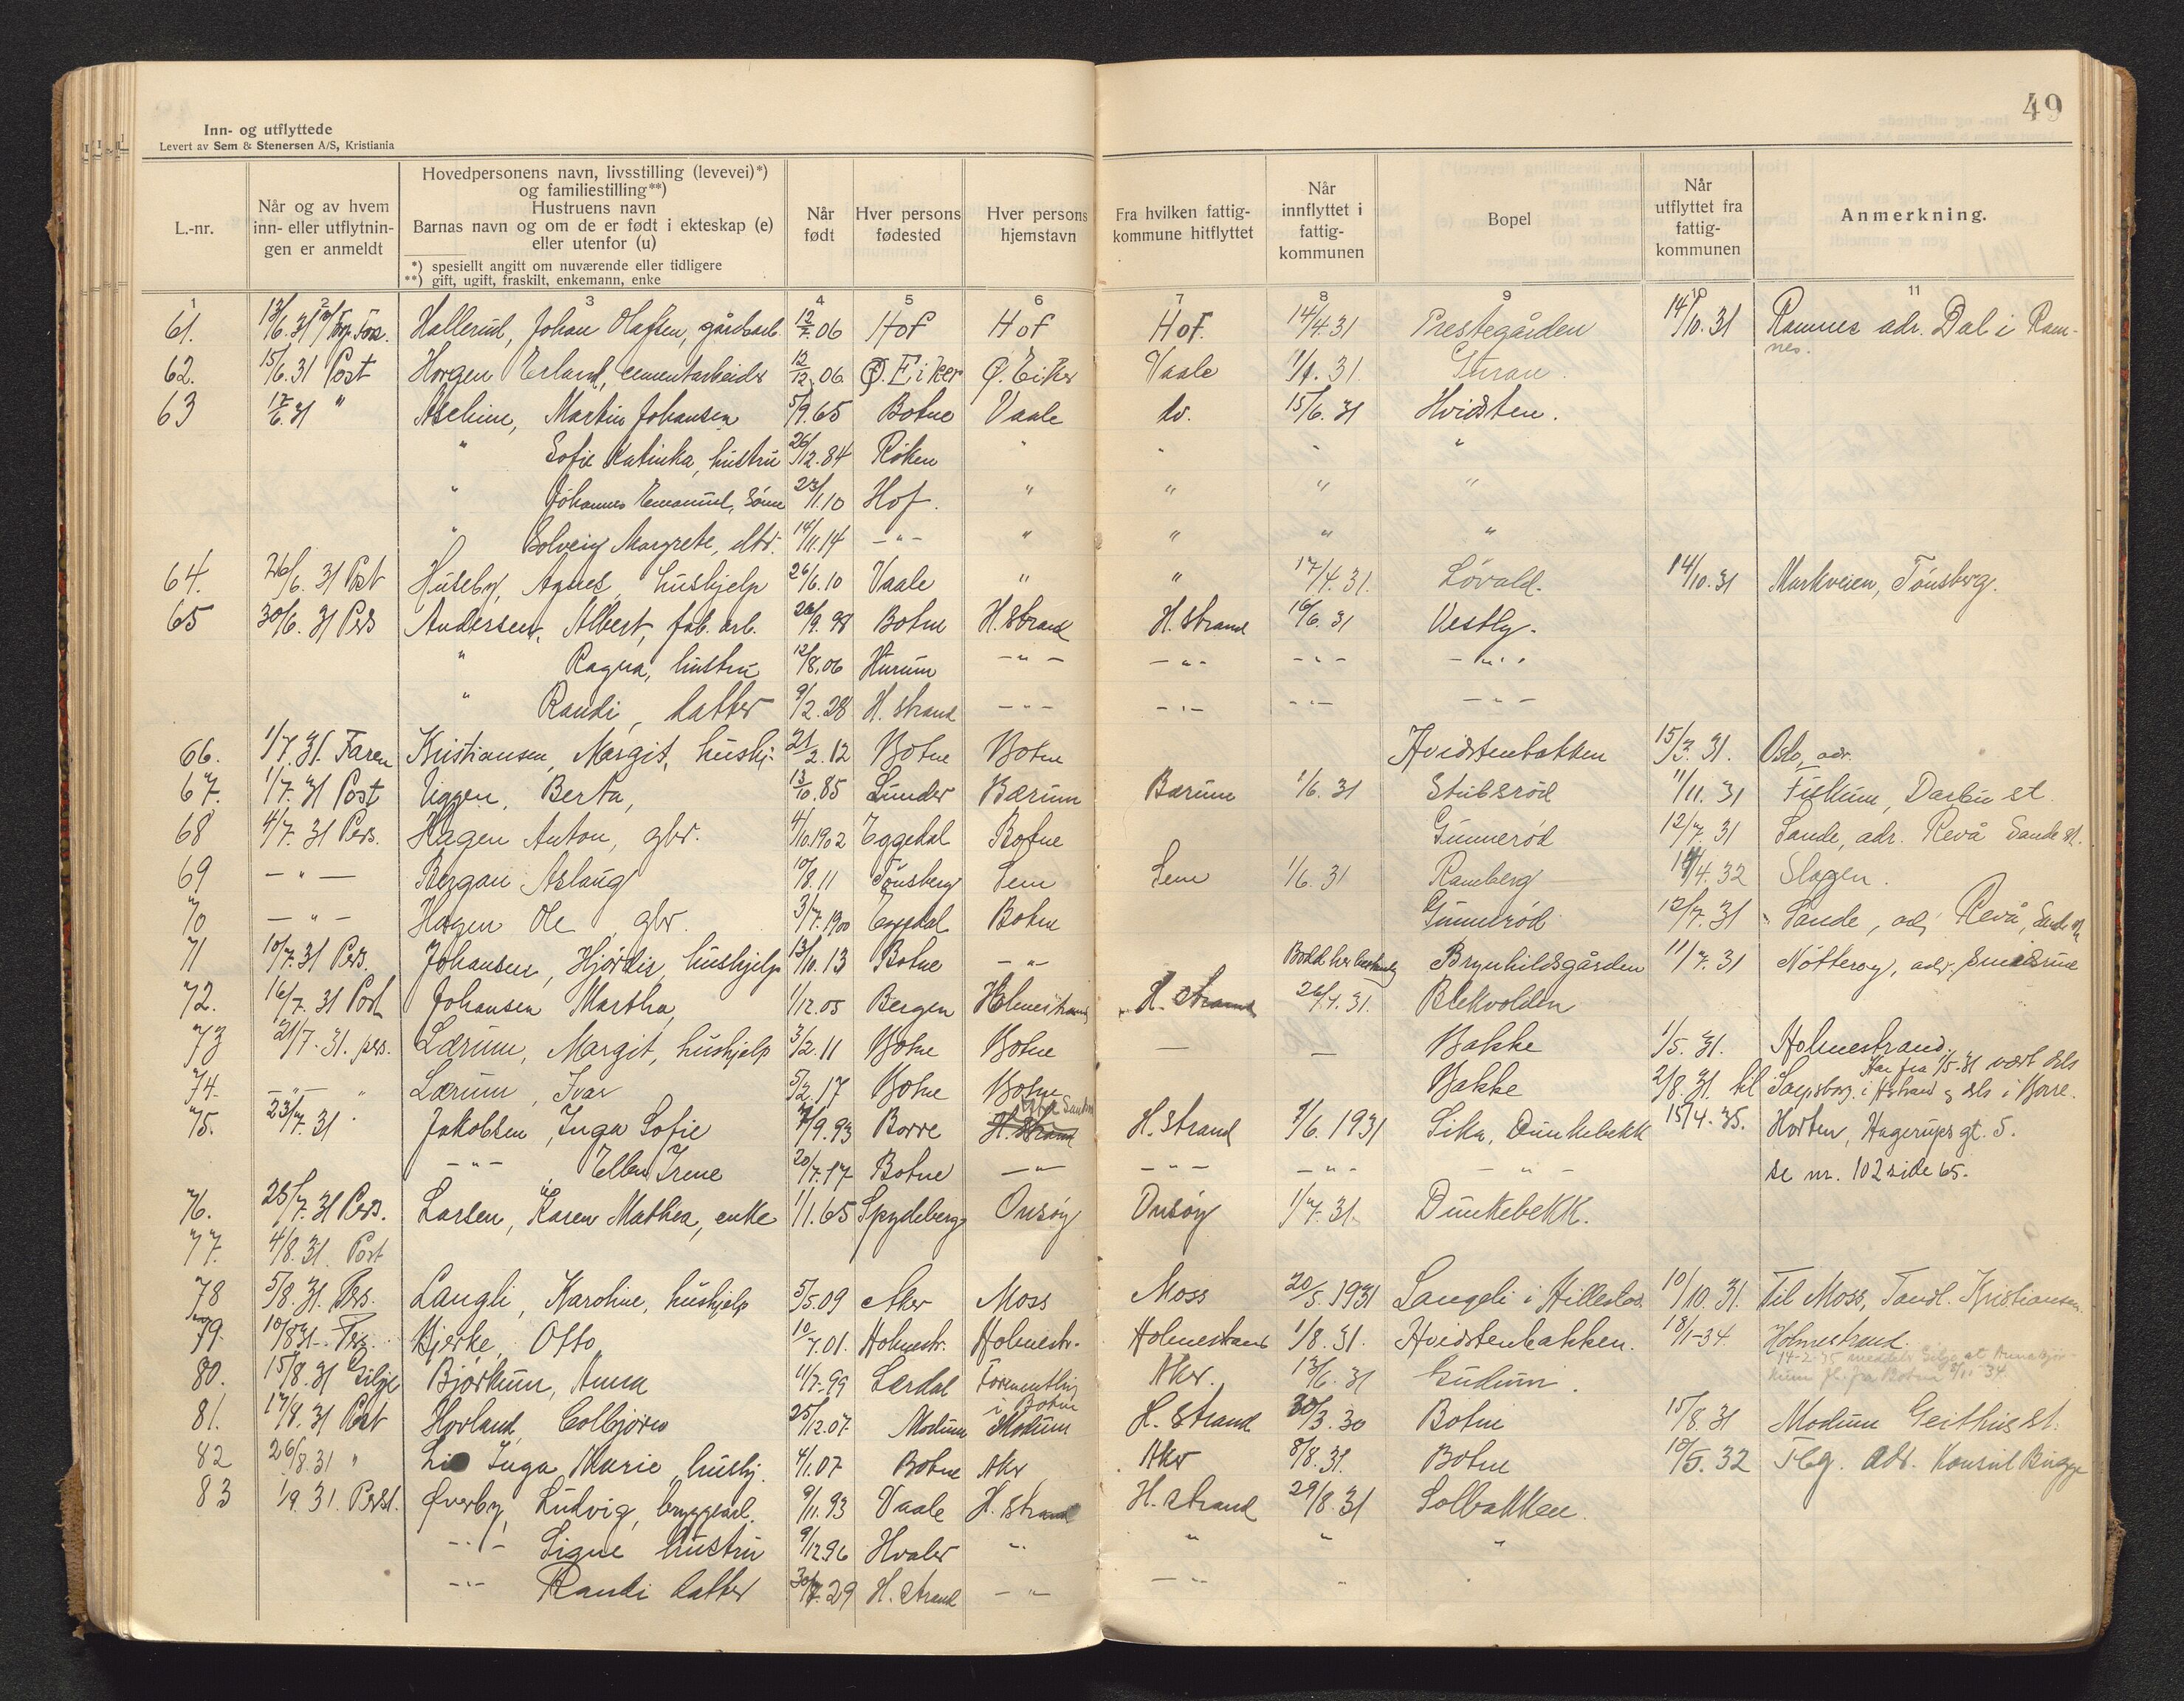 49
Inn- og utflyttede
Levert av Sem & Stenersen A/S, Kristiania
L.-nr.
Når og av hvem inn- eller utflytnin-gen er anmeldt
Hovedpersonens navn, livsstilling (levevei)*)
og familiestilling**)
Hustruens navn
Barnas navn og om de er født i ekteskap (e)
eller utenfor (u)
*) spesiellt angitt om nuværende eller tidligere
**) gift, ugift, fraskilt, enkemann, enke
Når født
Hver persons fødested
Hver persons hjemstavn
Fra hvilken fattig-kommune hitflyttet
Når innflyttet i fattig-kommunen
Bopel
Når utflyttet fra fattig-kommunen
Anmerkning.
1 2 3 4 5 6 7 8 9 10 11
61. 13/6.31 Hallerud, Johan Olafsen, gårdsarb. 12/7.06 Hof Hof Hof. 14/4.31 Prestegården 14/10.31 Ramnes adr. Dal i Ram-
nes.
62. 15/6.31 Post Horgen Erland, cementarbeider 12/12.06 Ø. Eiker Ø. Eiker Vaale 1/1.31.
63 17/6.31 " Martin Johansen 5/9.65 Botne Vaale do. 15/6.31 Hvidsten.
" Sofie Katinka, hustru 26/12.84 Røken " " " "
" Johannes Emanuel, sønn 23/11.10 Hof. " " " "
" Solveig Margrete, dtr. 14/11.14 - " - " " " "
64. 26/6.31 Post Huseby, Agnes, hushjelp 26/6.10 Vaale " " 17/4.31. Løvald. 14/10.31 Markveien, Tønsberg.
65 30/6.31 Pers Andersen, Albert, fab. arb. 26/9.98 Botne H. strand H. strand 16/6.31 Vestly.
" Ragna, hustru 12/8.06 Hurum - " - - " - - " - - " -
" Randi, datter 9/2.28 H. strand - " - - " - - " - - " -
66. 1/7.31. Faren Kristiansen, Margit, hushj. 21/2.12 Botne Botne Hvidstenbakken 15/2.31. Oslo, adr.
67. 1/7.31 Post Viggen, Berta, 13/10.85 Lunder Bærum Bærum 1/6.31 Stubsrød 11/11.31 Fiskum, Darbu st.
68 4/7.31 Pers. Hagen Anton, gbr. 4/10.1902 Eggedal Botne Gunnerød 12/7.31 Sande, adr. Revå Sande st.
69 - " - Bergan Aslaug 10/8.11 Tønsberg Sem Sem 1/6.31 Ramberg 14/4.32 Slagen.
70 - " - Hagen Ole, gbr. 3/7.1900 Eggedal Botne Gunnerød 12/7.31 Sande, adr Revå, Sande st
71 10/7.31 Pers. Johansen, Hjørdis, hushjelp 13/10.13 Botne - " - Bodd her Brynhildsgården 11/7.31 Nøtterøy, adr. Smidsrud
72. 16/7.31 Post Johansen Martha, 1/12.05 Bergen Holmestrand H. Strand 26/4.31. Blekvolden
73 21/7.31. pers. Lærum, Margit, hushjelp 3/2.11 Botne Botne - - Bakke 1/5.31. Holmestrand.
Har fra 1/5-31 vært dels
74. - " - " Lærum, Ivar 5/2.17 Botne Botne Bakke 2/8.31. til Sarpsborg. i Hstrand og dels i Borre.
75. 23/7.31. Jakobsen, Inga Sofie 4/9.93 Borre H. Strand H. Strand 1/6.1931 Sika, Dunkebekk 15/4.35. Horten, Hagerups gt. 5.
- " - Ellen Irene 20/7.17 Botne - " - - " - - " - - " - se nr. 102 side 65.
76. 25/7.31 Pers. Larsen, Karen Mathea, enke 1/1.65 Spydeberg Onsøy Onsøy 1/7.31. Dunkebekk.
77. 4/8.31. Post
78 5/8.31. Pers. Langli, Karoline, hushjelp 5/5.09 Aker Moss Moss 20/5.1931 Langeli i Hillestad. 10/10.31. Til Moss, Tandl. Kristiansen.
79. 10/8 31. Pers. Bjerke, Otto 10/7.01. Holmestr. Holmestr. Holmestrand 1/8.31. Hvidstenbakken. 18/1-34 Holmestrand.
80. 15/8.31 Gilje Bjørkum, Anna 11/7-99 Lærdal Formentlig i Botne Aker. 13/6.31 Gudum. 14-2-35 meddeler Gilje at Anna Bjør-
kum fl. fra Botne 34.
81. 17/8.31 Post Hovland, Colbjørn 25/12.07. Modum Modum H. Strand 30/3.30 Botne 15/8.31 Modum Geithus st.
82 26/8.31 " Inga Marie, hushj. 4/1.07 Botne Aker Aker 8/8.31. Botne 10/5.32 Tbg. adr. Konsul Bugge
83 1/9.31. Persl. Øverby, Ludvig, bryggearb. 9/11.93 Vaale H. strand H. strand 29/8.31 Solbakken.
- " - Signe hustru 9/12.96 Hvaler " " " "
- " - Randi datter 30/7.29 H. strand - " - - " - " "